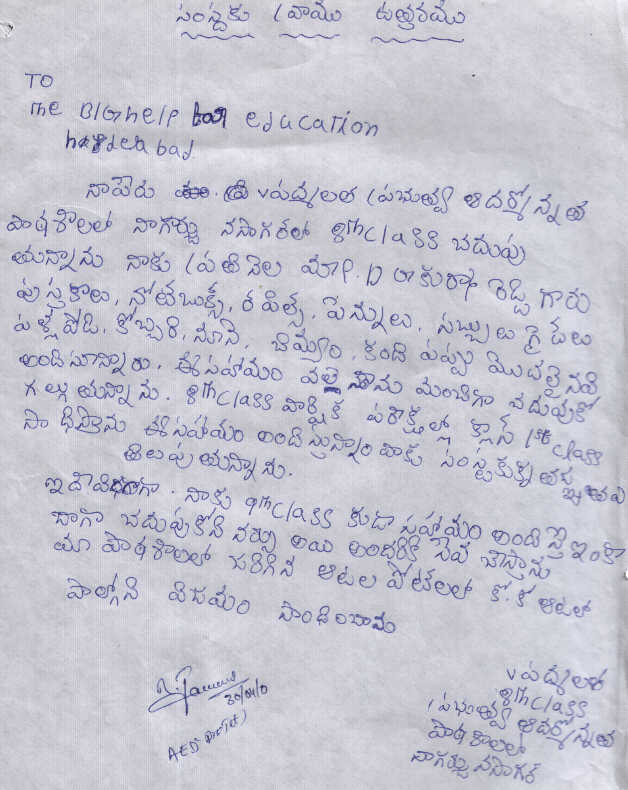 సంస్దకు వ్రాయు ఉత్తరము
TO
The BIGhelp for education
haidea bad
నాపేరు v పద్మలత ప్రభుత్వ ఆదర్శోన్నత
పాఠశాలలో నాగార్జు నసాగరలో 8thclass చదువు
తున్నాను నాకు ప్రతినెల మా P.D రెడ్డి గారు
పుస్తకాలు, నోటబుక్స్, పెన్నులు, సబ్బులు
పళ్ళపొడి, కొబ్బరి, నూనె, బియ్యం, కంది పప్పు మొదలైనవి
అందిస్తూన్నారు. ఈసహాయం వల్లె నేను మంచిగా చదువుకో
గల్గు తున్నాను. 8thclass వార్షిక పరీక్షల్లో క్లాస్ 1st class
సాధిస్తాను ఈసహాయం అందిస్తున్నా సంస్టకు కృతజ్ఞతలు
తెలుపుతున్నాను.
ఇదేవిధంగా. నాకు 9thclass కుడా సహాయం అందిస్తే ఇంకా
బాగా చదువుకోని నర్సు అయి అందరికి సేవ చేస్తాను
మా పాఠశాలలో జరిగిన ఆటల పోటిలలో కో.కో ఆటలో
పాల్గోని విజయం పొందినాము
30/04/0
v పద్మలత
8thclass
ప్రభుత్వ ఆదర్శోన్నత
పాఠశాలలో
నాగార్జు నసాగర